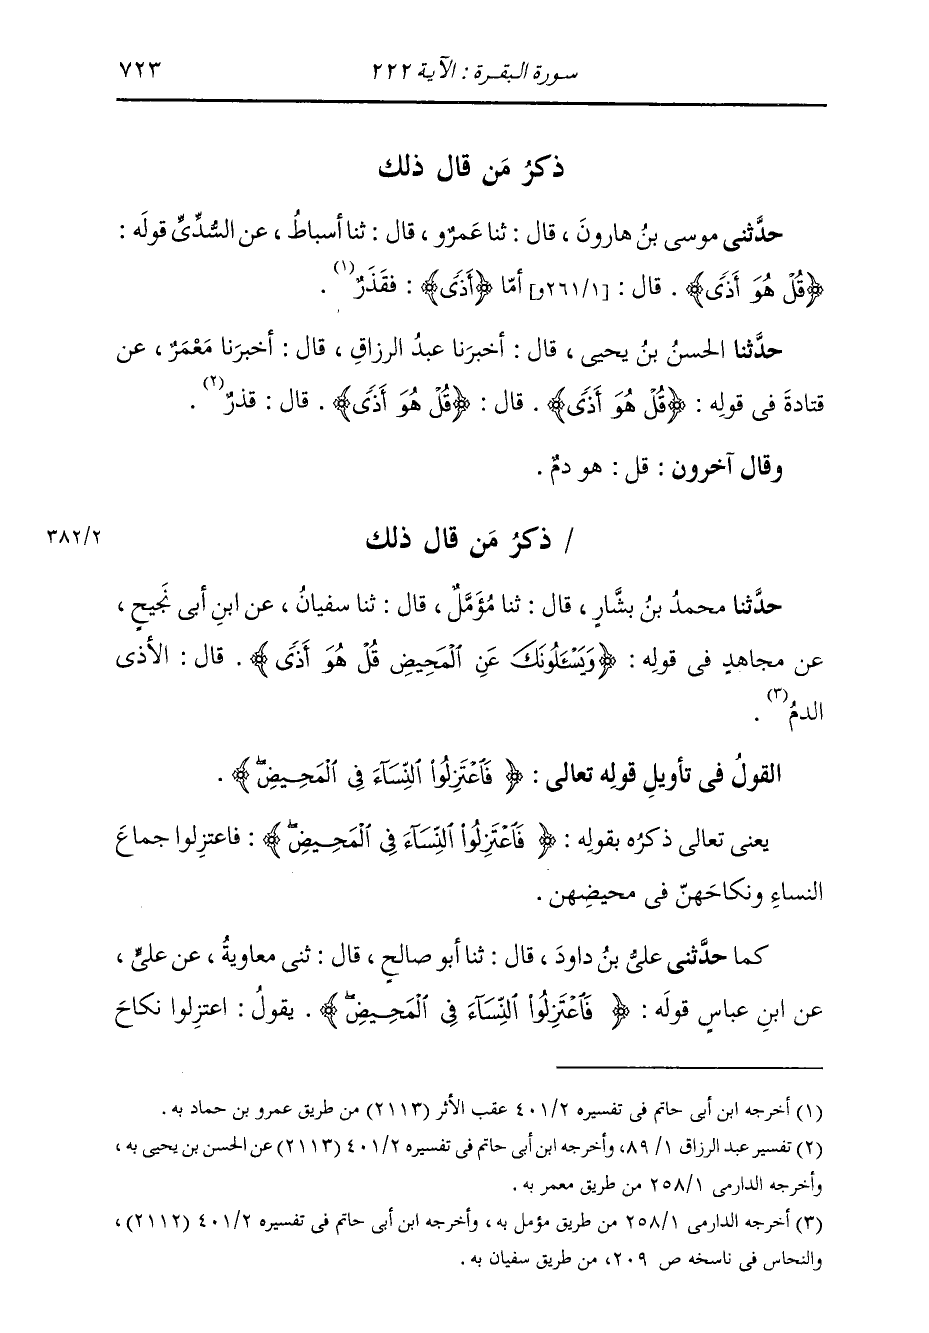 سورة البقرة : الآية ٢٢٢ ٧٢٣
ذكرُ مَن قال ذلك
حدَّثنى موسى بنُ هارونَ ، قال : ثنا عَمرٌو ، قال : ثنا أسباطُ ، عن السُّدِّىِّ قولَه :
﴿قُلْ هُوَ أَذًى﴾ . قال : [٢٦١/١و] أمّا ﴿أَذًى﴾ : فقَذَرٌ(١) .
حدَّثنا الحسنُ بنُ يحيى ، قال : أخبرَنا عبدُ الرزاقِ ، قال : أخبرَنا مَعْمَرٌ ، عن
قتادةَ فى قولِه : ﴿قُلْ هُوَ أَذًى﴾ . قال : ﴿قُلْ هُوَ أَذًى﴾ . قال : قذرٌ(٢) .
وقال آخرون : قل : هو دمٌ .
/ ذكرُ مَن قال ذلك ٣٨٢/٢
حدَّثنا محمدُ بنُ بشَّارٍ ، قال : ثنا مُؤَمَّلٌ ، قال : ثنا سفيانُ ، عن ابنِ أبى نَجيحٍ ،
عن مجاهدٍ فى قولِه : ﴿وَيَسْـَٔلُونَكَ عَنِ ٱلْمَحِيضِ قُلْ هُوَ أَذًى﴾ . قال : الأذى
الدمُ(٣) .
القولُ فى تأويلِ قولِه تعالى : ﴿فَٱعْتَزِلُوا۟ ٱلنِّسَآءَ فِى ٱلْمَحِيضِۖ﴾ .
يعنى تعالى ذكرُه بقولِه : ﴿فَٱعْتَزِلُوا۟ ٱلنِّسَآءَ فِى ٱلْمَحِيضِۖ﴾ : فاعتزِلوا جماعَ
النساءِ ونكاحَهنّ فى محيضِهن .
كما حدَّثنى علىُّ بنُ داودَ ، قال : ثنا أبو صالحٍ ، قال : ثنى معاويةُ ، عن علىٍّ ،
عن ابنِ عباسٍ قولَه : ﴿فَٱعْتَزِلُوا۟ ٱلنِّسَآءَ فِى ٱلْمَحِيضِۖ﴾ . يقولُ : اعتزِلوا نكاحَ
(١) أخرجه ابن أبى حاتم فى تفسيره ٤٠١/٢ عقب الأثر (٢١١٣) من طريق عمرو بن حماد به .
(٢) تفسير عبد الرزاق ٨٩/١، وأخرجه ابن أبى حاتم فى تفسيره ٤٠١/٢ (٢١١٣) عن الحسن بن يحيى به ،
وأخرجه الدارمى ٢٥٨/١ من طريق معمر به .
(٣) أخرجه الدارمى ٢٥٨/١ من طريق مؤمل به ، وأخرجه ابن أبى حاتم فى تفسيره ٤٠١/٢ (٢١١٢) ،
والنحاس فى ناسخه ص ٢٠٩، من طريق سفيان به .